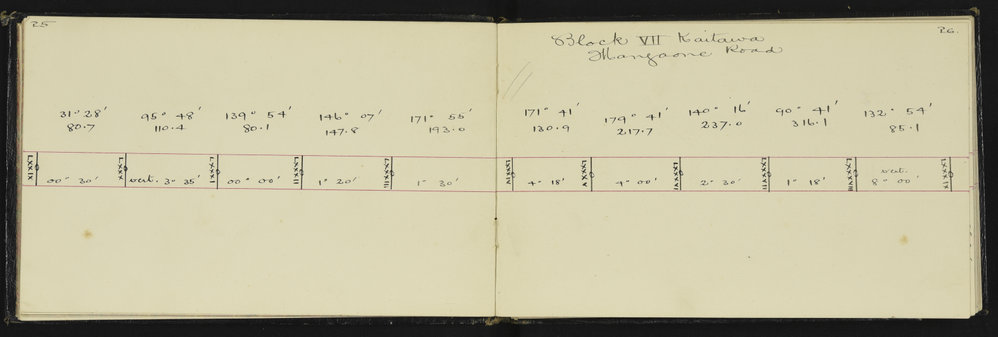 25
31° 28' 95° 48' 139° 54' 146° 07' 171° 55'
80.7 110.4 80.1 147.8 193.0
LXXIX LXXX LXXXI LXXXII LXXXIII
00° 30' vert. 3° 35' 00° 00' 1° 20' 1° 30'
26.
Block VII Kaitawa
Mangaone Road
171° 41' 179° 41' 140° 16' 90° 41' 132° 54'
130.9 217.7 237.0 316.1 85.1
vert.
4° 18' 4° 00' 2° 30' 1° 18' 8° 00'